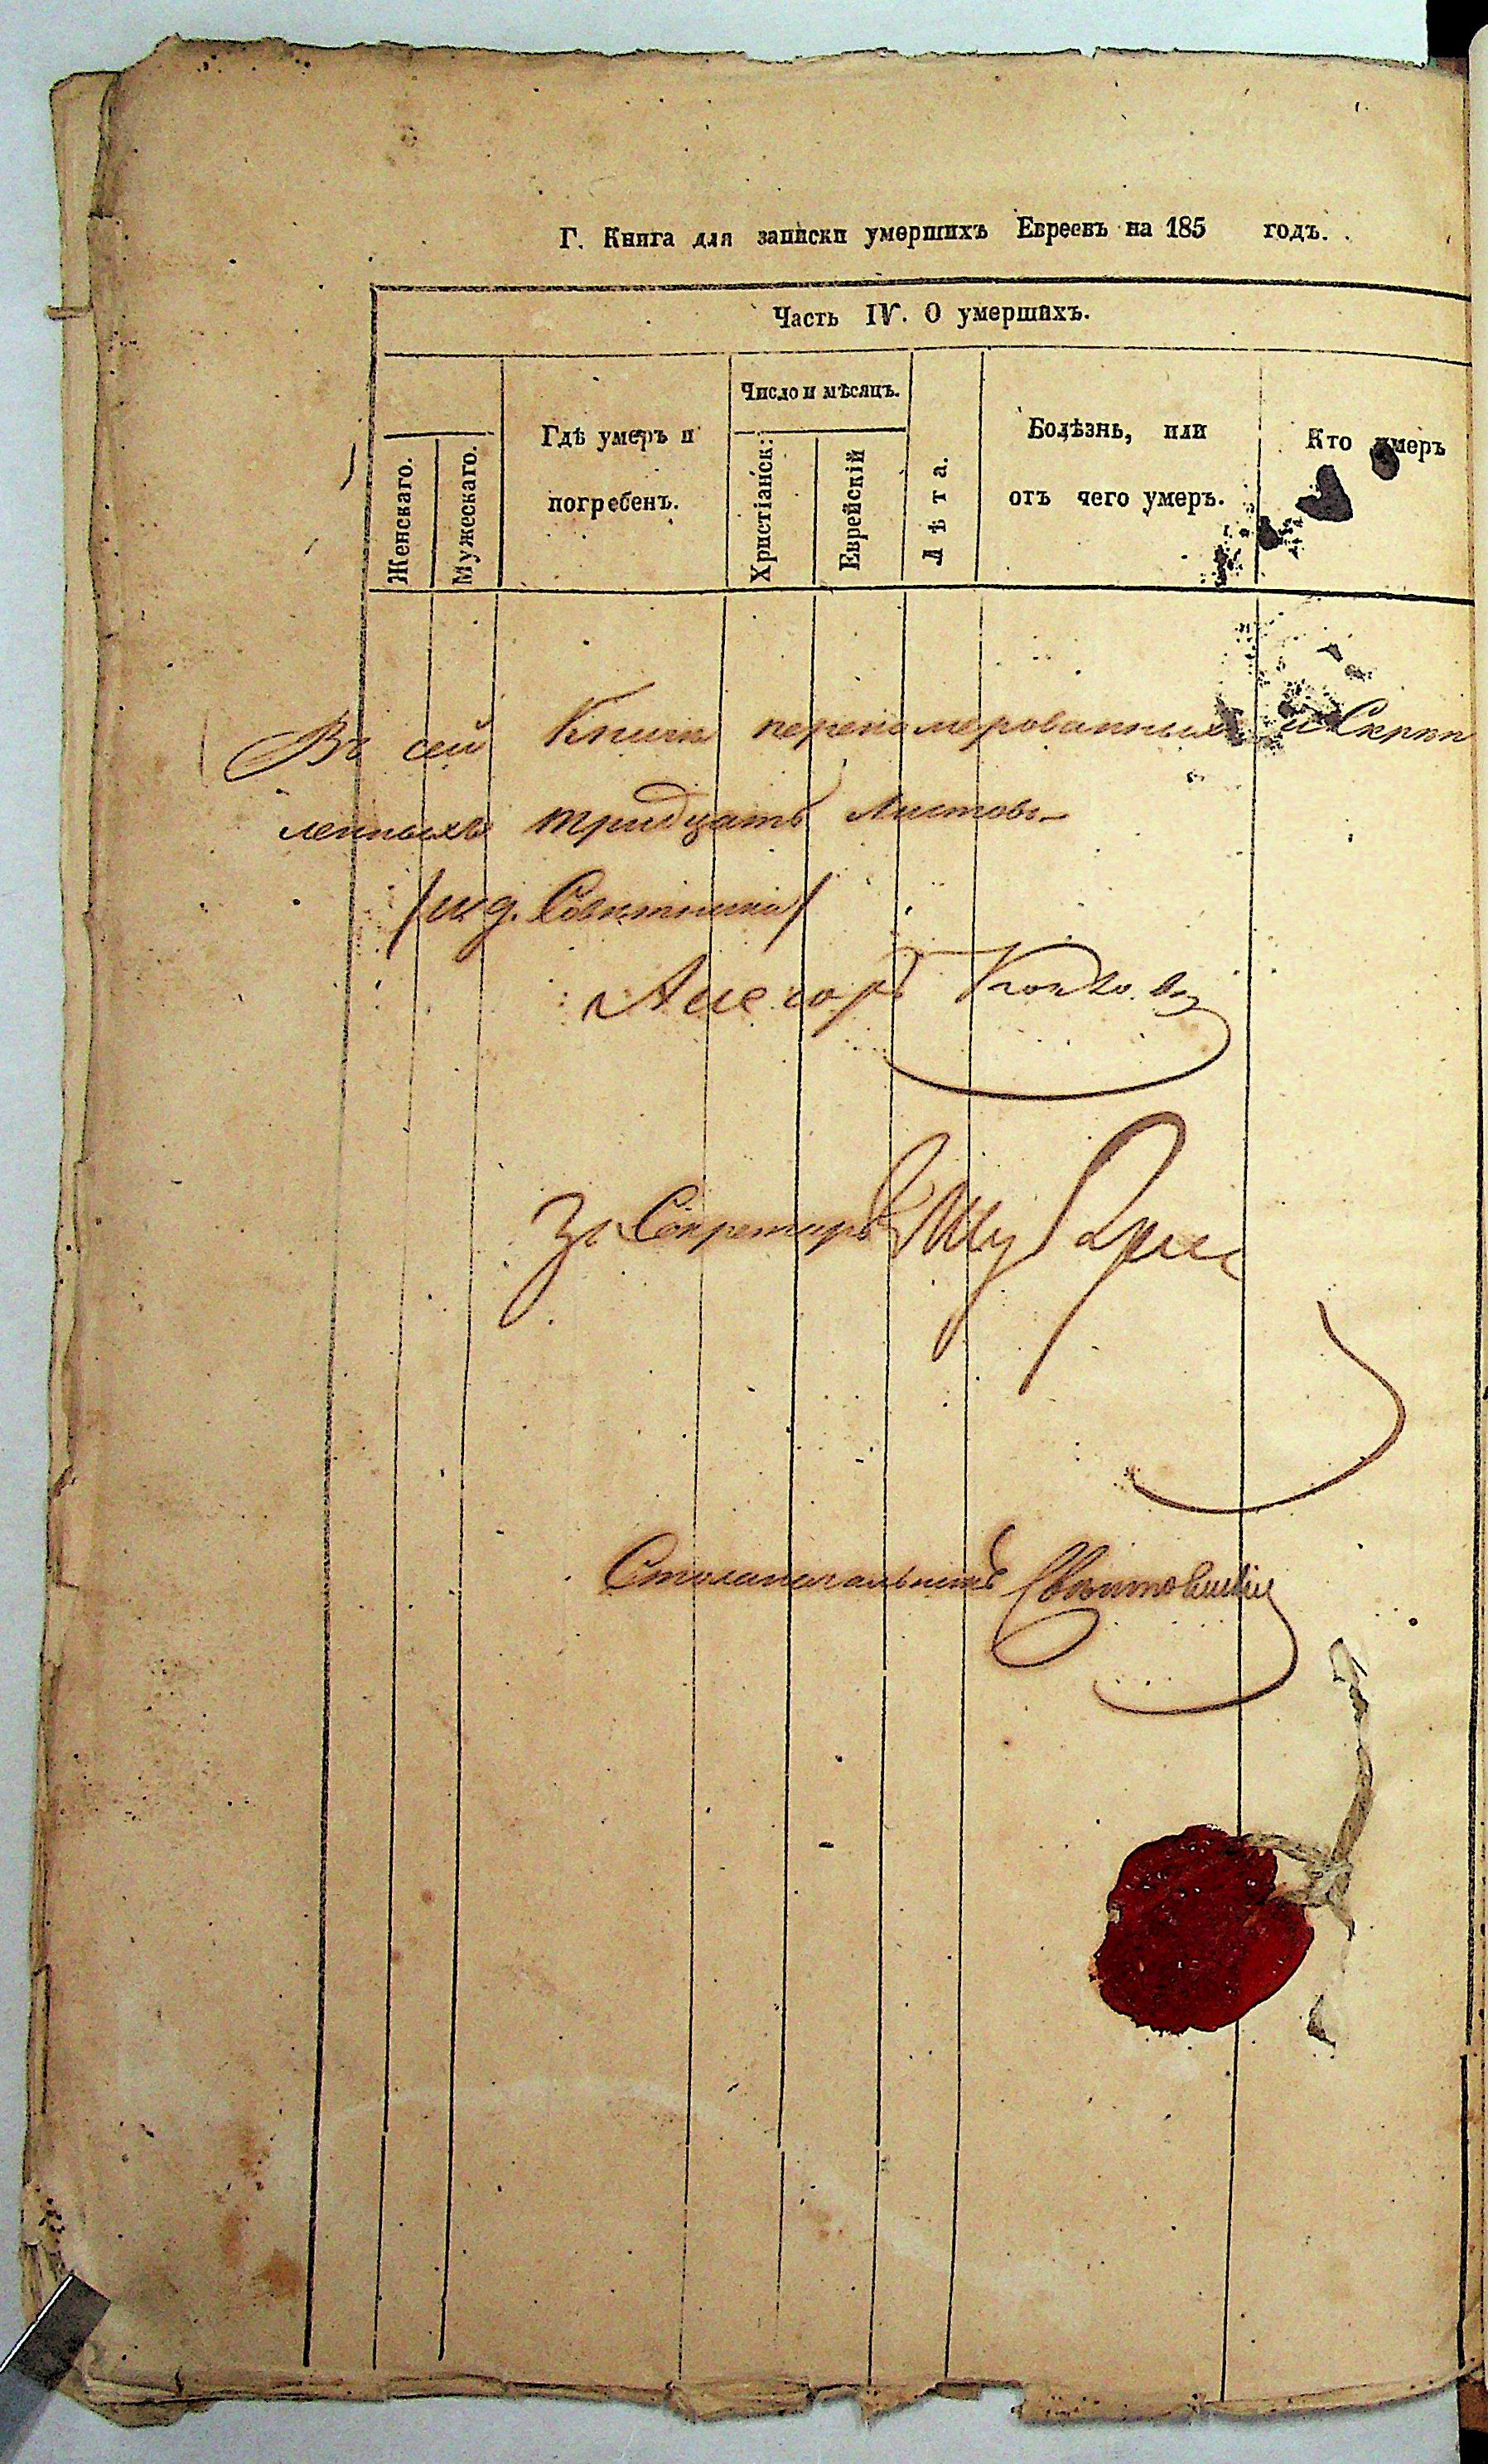 Г. Книга для записки умершихъ Евреевъ на 185 годъ.
Часть IV. О умершихъ.
Женскаго.
Мужескаго.
Гдѣ умеръ и
погребенъ.
Число и мѣсяцъ.
Христіанск:
Еврейскій
Лѣта.
Болѣзнь, или
отъ чего умеръ.
Кто умеръ
Въ сей Книге переномерованныхъ и Скрѣп
ленныхъ тридцать листовъ
/ид. Совѣтника/
За Секретаря
Столоначальникъ